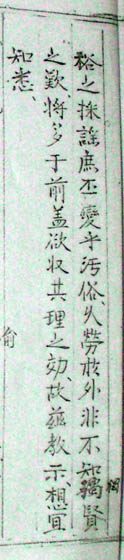 裕之採謡庶丕變乎汚俗久勞於外非不知獨賢
之歎將多于前盖欲収其理之効故玆敎示想宜
知悉